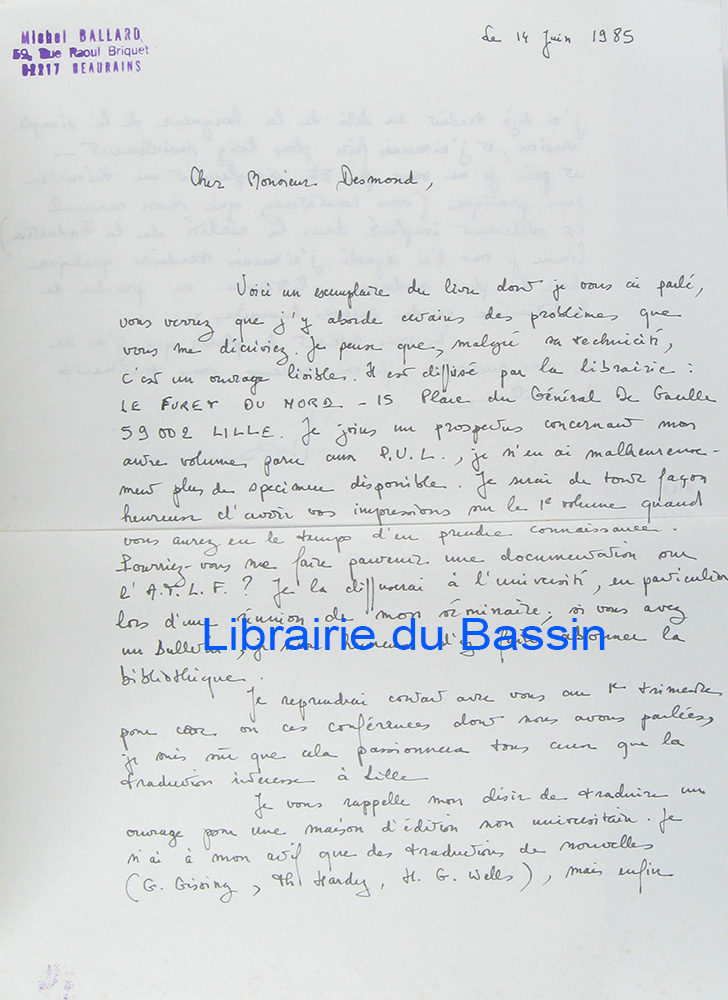 Michel BALLARD
59, Rue Raoul Briquet
62217 BEAURAINS
Le 14 Juin 1985
Cher Monsieur Desmond,
Voici un exemplaire du livre dont je vous ai parlé,
vous verrez que j'y aborde certains des problèmes que
vous me décriviez. Je pense que, malgré sa technicité,
c'est un ouvrage lisible. Il est diffusé par la librairie :
LE FURET DU NORD - 15 Place du Général De Gaulle
59002 LILLE. Je joins un prospectus concernant mon
autre volume paru aux P.U.L., je n'en ai malheureuse-
ment plus de specimen disponible. Je serai de toute façon
heureux d'avoir vos impressions sur le 1e volume quand
vous aurez eu le temps d'en prendre connaissance.
Pourriez-vous me faire parvenir une documentation sur
l'A.T.L.F. ? Je la diffuserai à l'université, en particulier
lors d'une réunion de mon séminaire ; si vous avez
un Bulletin, je d'y abonner la
Librairie du Bassin
bibliothèque.
Je reprendrai contact avec vous au 1er trimestre
pour ces conférences dont nous avons parlées,
je suis sûr que cela passionnera tous ceux que la
traduction intéresse à Lille
Je vous rappelle mon désir de traduire un
ouvrage pour une maison d'édition non universitaire. Je
n'ai à mon actif que des traductions de nouvelles
(G. Gissing, Th Hardy, H. G. Wells), mais enfin